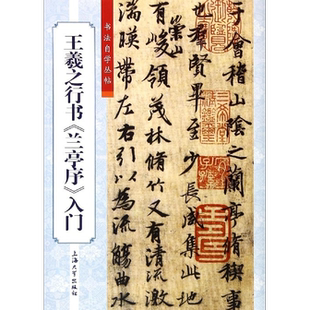 书法自学丛帖
王羲之行书《兰亭序》入门
上海大学出版社
于會稽山陰之蘭亭脩稧事
也羣賢畢至少長咸集此地
有崇山
峻領茂林脩竹又有清流激
湍暎帶左右引以為流觴曲水